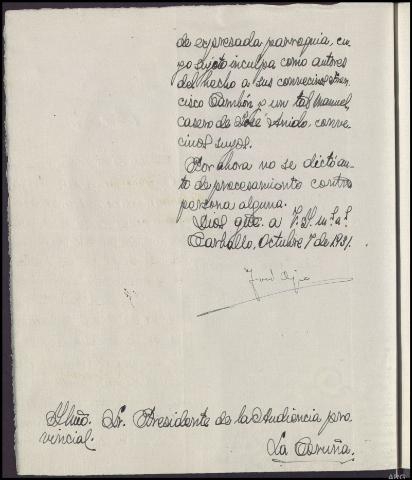 de expresada parroquia, cu-
yo sujeto inculpa como autores
del hecho a sus convecinos Fran-
cisco Cambón y un tal Manuel,
casero de José Anido, conve-
cinos suyos.
Por ahora no se dictó au-
to de procesamiento contra
persona alguna.
Dios gue. a V.S.
Carballo, Octubre 7 de 1931.
José
Iltmo. Sr. Presidente de la Audiencia pro-
vincial.
La Coruña.